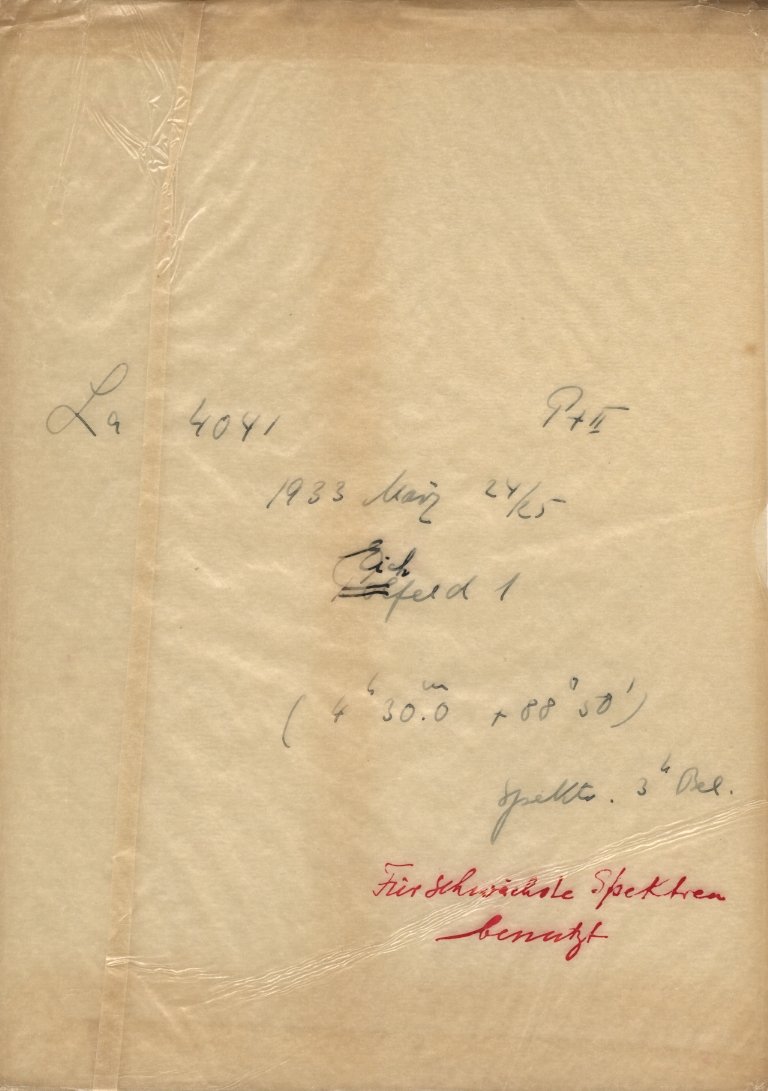 La 4041 P+II
1933 März 24/25
Eich
Polfeld 1
(4ʰ 30.ᵐ0 + 88° 50')
Spektr. 3ʰ Bel.
Für schwächste Spektren
benutzt